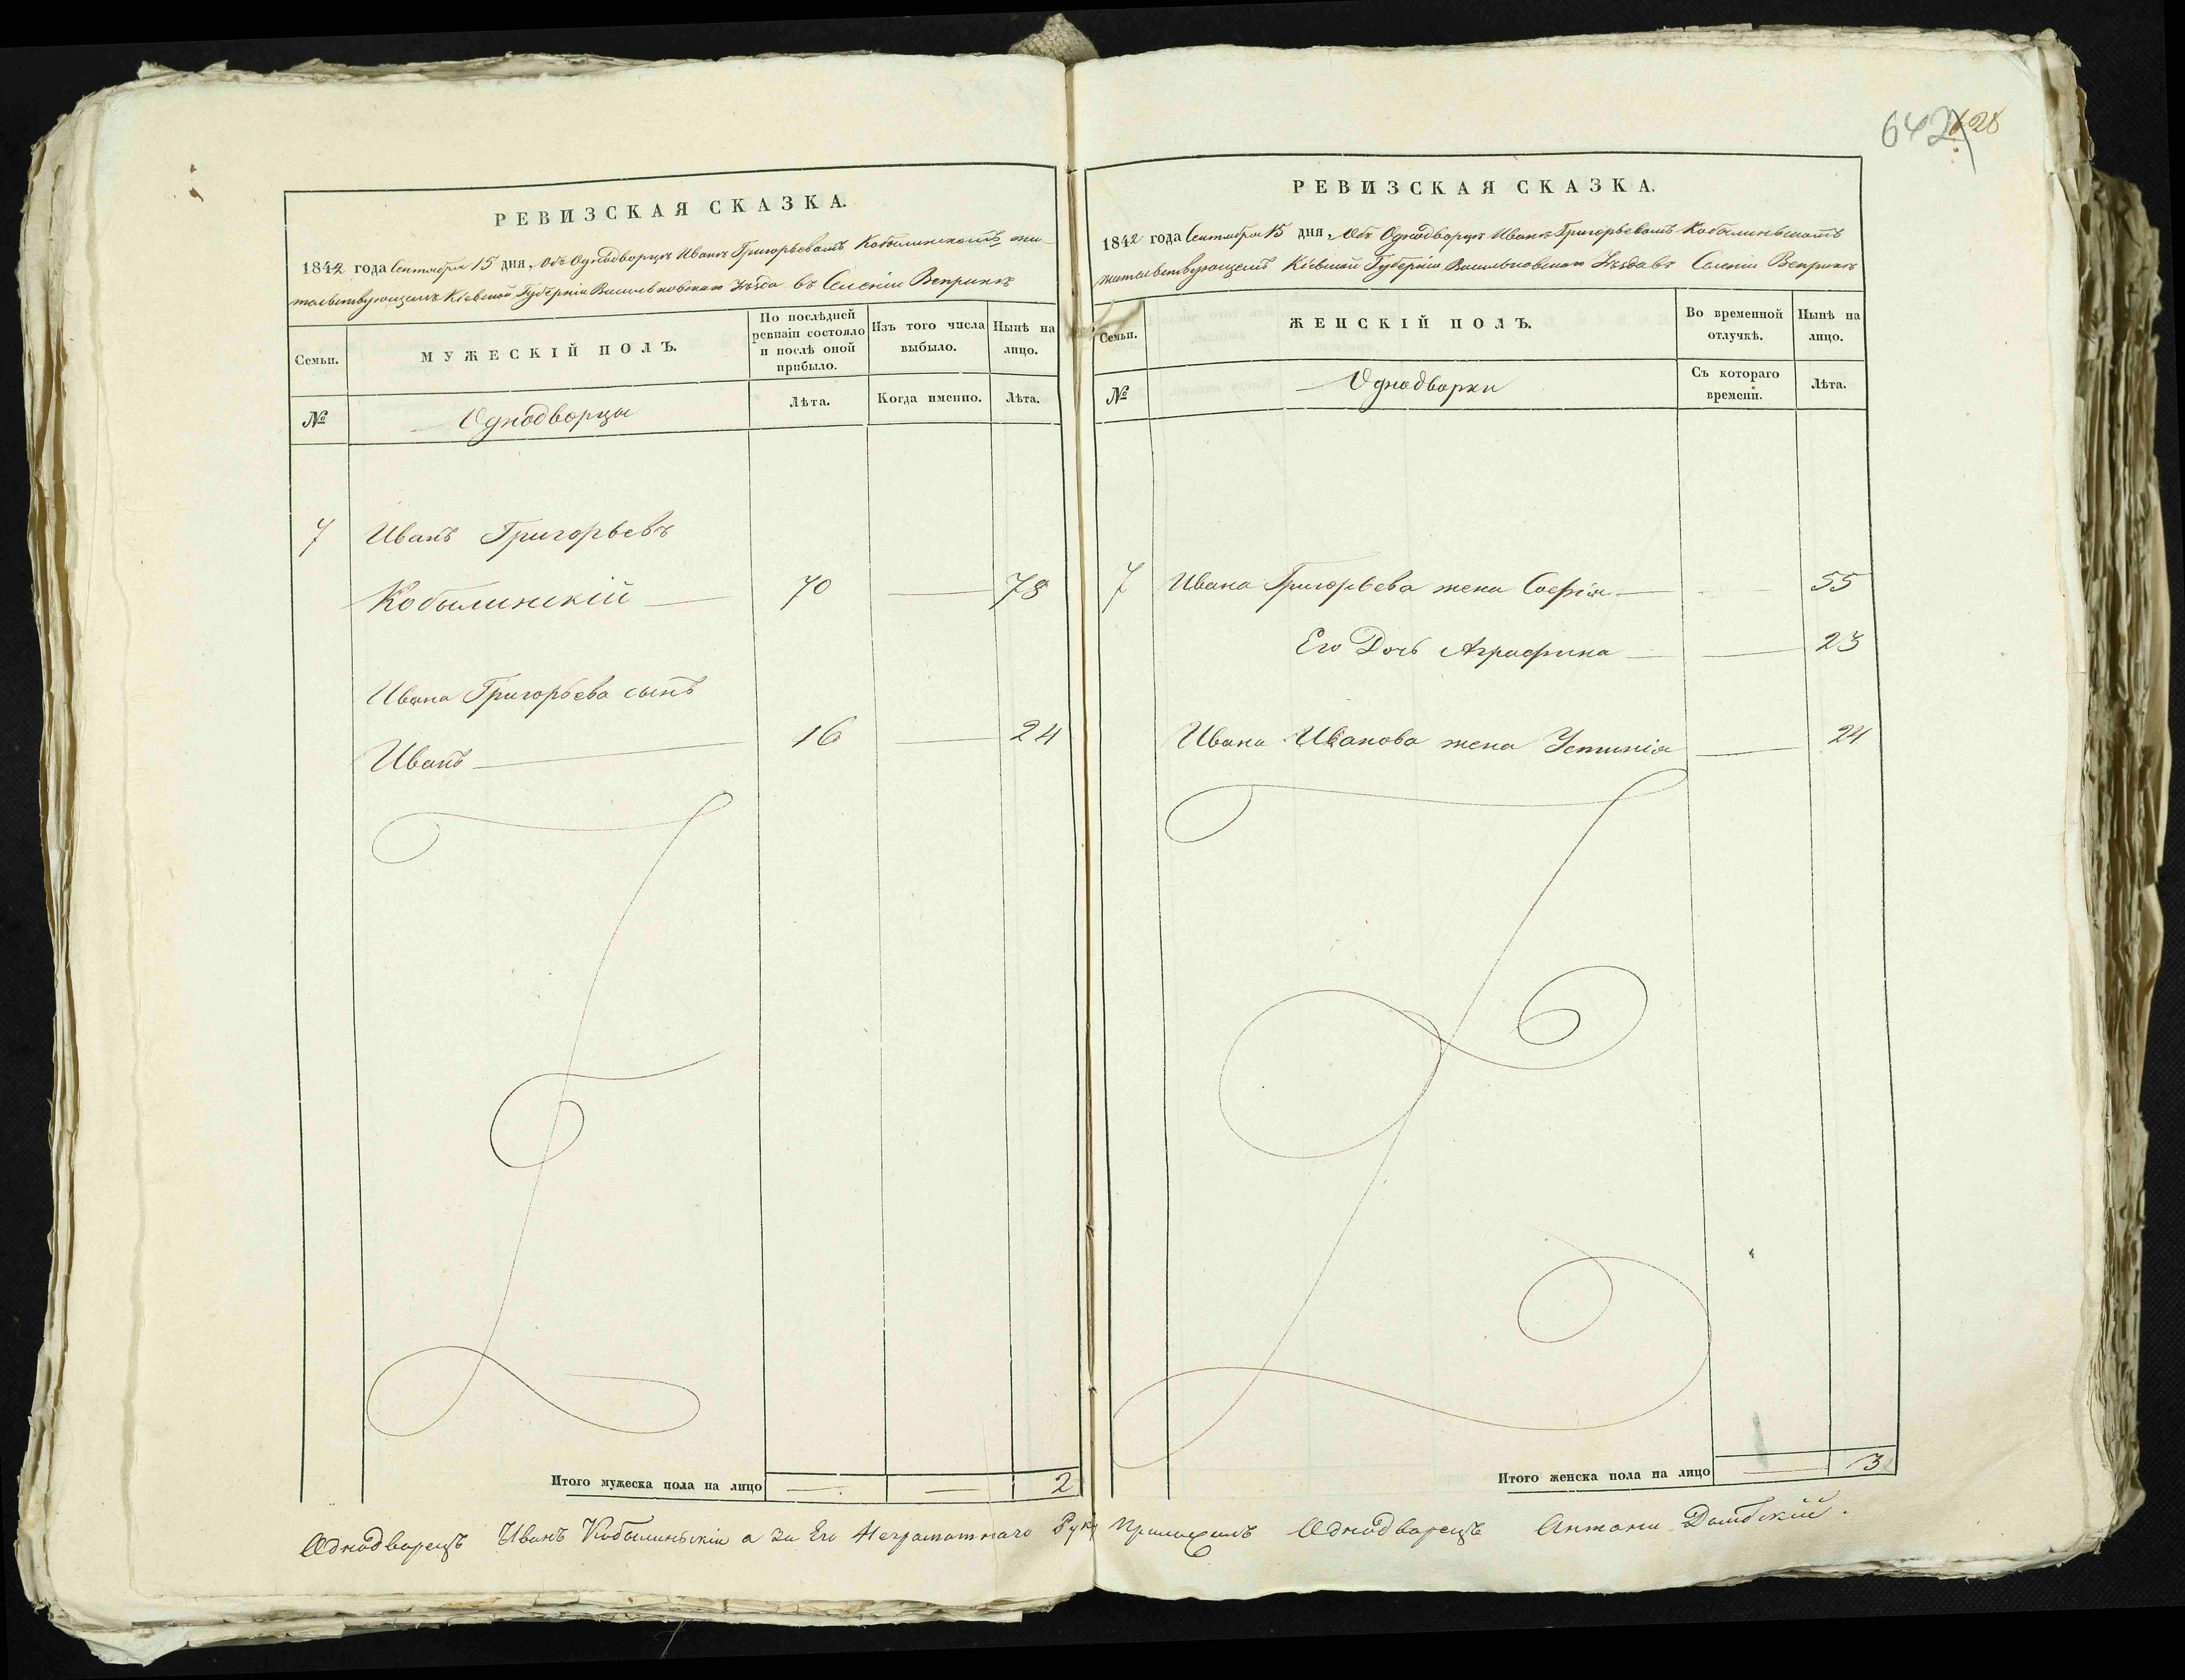 642 626
РЕВИЗСКАЯ СКАЗКА.
1842 года Сентября 15 дня, Объ Однодворцѣ Иванѣ Григорьевомъ Кобылинскомъ жи-
тельствующемъ Кіевской Губерніи Васильковскаго Уѣзда въ Селеніи Веприкѣ
Семьи.
МУЖЕСКІЙ ПОЛЪ.
По послѣдней ревизіи состояло и послѣ оной прибыло.
Изъ того числа выбыло.
Нынѣ на лицо.
№
Однодворцы
Лѣта.
Когда именно.
Лѣта.
7 Иванъ Григорьевъ
Кобылинскій 70 78
Ивана Григорьева сынъ
Иванъ 16 24
Итого мужеска пола на лицо 2
РЕВИЗСКАЯ СКАЗКА.
1842 года Сентября 15 дня, Объ Однодворцѣ Иванѣ Григорьевомъ Кобылиньскомъ
жительствующемъ Кіевской Губерніи Васильковскаго Уѣзда въ Селеніи Веприкѣ
Семьи.
ЖЕНСКІЙ ПОЛЪ.
Во временной отлучкѣ.
Нынѣ на лицо.
№
Однодворки
Съ котораго времени.
Лѣта.
7 Ивана Григорьева жена Софія 55
Его Дочь Аграфина 23
Ивана Иванова жена Устинія 24
Итого женска пола на лицо 3
Однодворецъ Иванъ Кобылиньскій а за Его Неграматнаго Руку Приложилъ Однодворецъ Антони Домбскій.